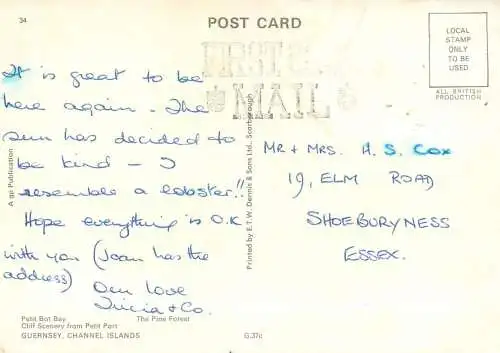 34
POST CARD
LOCAL
STAMP
ONLY
TO BE
USED
ALL BRITISH
PRODUCTION
It is great to be
here again - The
sun has decided to
be kind - I
resemble a lobster!!
Hope everything is O.K
with you (Joan has the
address)
Our love
Tricia & Co.
A gp Publication
Printed by E.T.W. Dennis & Sons Ltd., Scarborough
MR & MRS. H. S. COX
19, ELM ROAD
SHOEBURYNESS
ESSEX.
Petit Bot Bay
The Pine Forest
Cliff Scenery from Petit Port
GUERNSEY, CHANNEL ISLANDS
G.37c